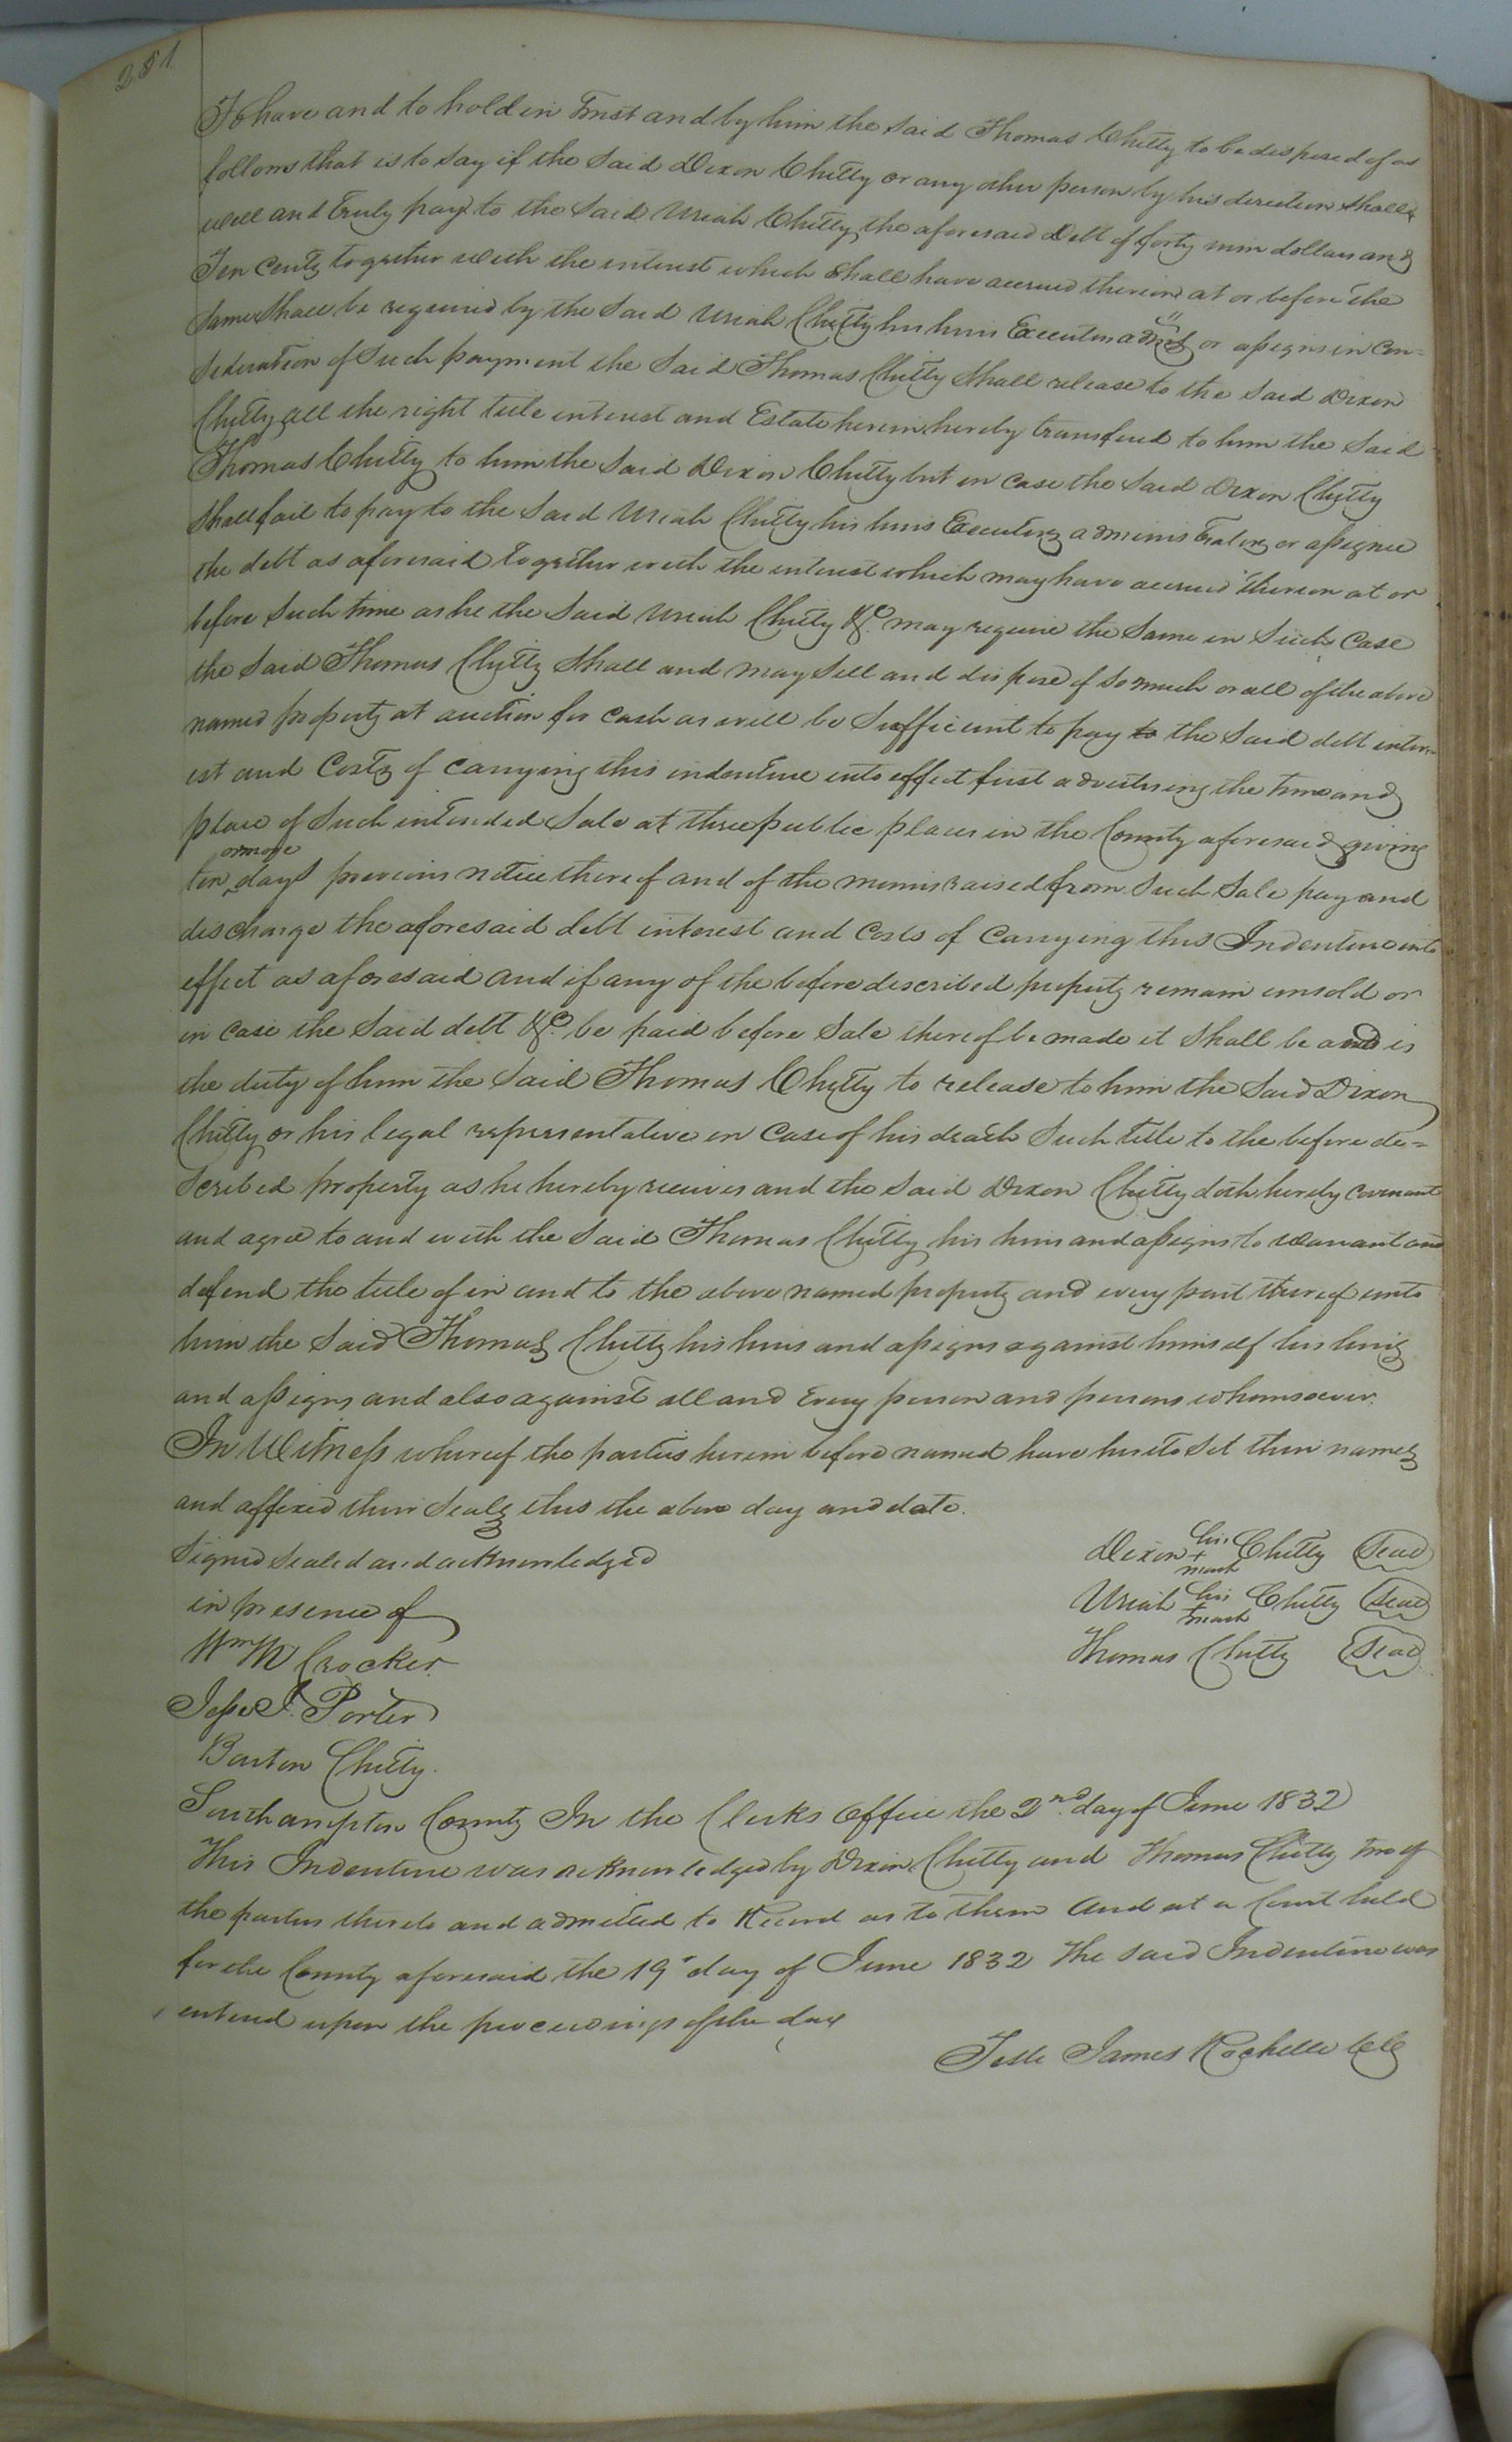 251
To have and to hold in Trust and by him the Said Thomas Chitty to be disposed of as
follows that is to Say if the Said Dixon Chitty or any other person by his direction Shall
well and Truly pay to the Said Uriah Chitty the aforesaid Debt of forty nine dollars and
Ten Cents together with the interest which Shall have accrued thereon at or before the
Same Shall be required by the Said Uriah Chitty his heirs Executors admrs or assigns in Con=
sideration of Such payment the Said Thomas Chitty Shall release to the Said Dixon
Chitty all the right title interest and Estate herein hereby transferred to him the Said
Thomas Chitty to him the Said Dixon Chitty but in Case the Said Dixon Chitty
Shall fail to pay to the Said Uriah Chitty his heirs Executors administrators or assignee
the debt as aforesaid together with the interest which may have accrued thereon at or
before Such time as he the Said Uriah Chitty &c. may require the Same in Such Case
the Said Thomas Chitty Shall and may Sell and dispose of So much or all of the above
named property at auction for Cash as will be Sufficient to pay to the Said debt inter=
est and Costs of Carrying this indenture into effect first advertising the time and
place of Such intended Sale at three public places in the County aforesaid giving
ten or more days previous notice thereof and of the monies raised from Such Sale pay and
discharge the aforesaid debt interest and Costs of Carrying this Indenture into
effect as aforesaid and if any of the before described property remain unsold or
in Case the Said debt &c. be paid before Sale thereof be made it Shall be and is
the duty of him the Said Thomas Chitty to release to him the Said Dixon
Chitty or his legal representative in Case of his death Such title to the before de=
scribed property as he hereby receives and the Said Dixon Chitty doth hereby Covenant
and agree to and with the Said Thomas Chitty his heirs and assigns to Warrant and
defend the title of in and to the above named property and every part thereof unto
him the Said Thomas Chitty his heirs and assigns against himself his heirs
and assigns and also against all and Every person and persons whomsoever.
In Witness whereof the parties herein before named have hereto Set their names
and affixed their Seals this the above day and date.
Signed Sealed and acknowledged
in presence of
Wm M Crocker
Jesse J. Porter
Barton Chitty.
Dixon his + mark Chitty Seal
Uriah his + mark Chitty Seal
Thomas Chitty Seal
Southampton County In the Clerks Office the 2nd. day of June 1832
This Indenture was acknowledged by Dixon Chitty and Thomas Chitty two of
the parties thereto and admitted to Record as to them And at a Court held
for the County aforesaid the 19 day of June 1832 The Said Indenture was
entered upon the proceedings of the day
Teste James Rochelle Clk